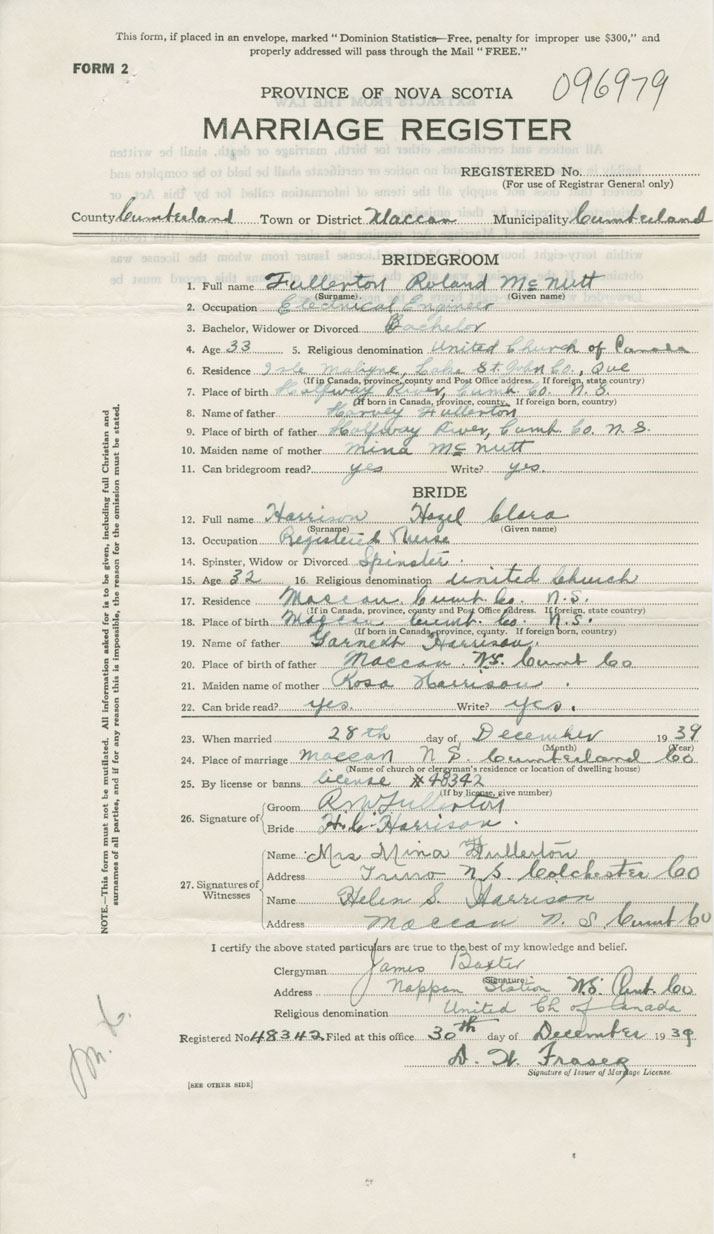 This form, if placed in an envelope, marked "Dominion Statistics—Free, penalty for improper use $300," and
properly addressed will pass through the Mail "FREE."
FORM 2
096979
PROVINCE OF NOVA SCOTIA
MARRIAGE REGISTER
REGISTERED No.
(For use of Registrar General only)
County Cumberland Town or District Maccan Municipality Cumberland
BRIDEGROOM
1. Full name Fullerton Roland McNutt
(Surname) (Given name)
2. Occupation Electrical Engineer
3. Bachelor, Widower or Divorced Bachelor
4. Age 33 5. Religious denomination United Church of Canada
6. Residence Isle Maligne, Lake St. John Co., Que
(If in Canada, province, county and Post Office address. If foreign, state country)
7. Place of birth Halfway River, Cumb. Co. N. S.
(If born in Canada, province, county. If foreign born, country)
8. Name of father Harvey Fullerton
9. Place of birth of father Halfway River, Cumb. Co. N. S.
10. Maiden name of mother Mina McNutt
11. Can bridegroom read? yes Write? yes.
BRIDE
12. Full name Harrison Hazel Clara
(Surname) (Given name)
13. Occupation Registered Nurse
14. Spinster, Widow or Divorced Spinster.
15. Age 32 16. Religious denomination United Church
17. Residence Maccan Cumb. Co. N.S.
(If in Canada, province, county and Post Office address. If foreign, state country)
18. Place of birth Maccan Cumb. Co. N.S.
(If born in Canada, province, county. If foreign born, country)
19. Name of father Garnett Harrison.
20. Place of birth of father Maccan N.S. Cumb Co
21. Maiden name of mother Rosa Harrison.
22. Can bride read? yes. Write? yes.
23. When married 28th day of December 1939
(Month) (Year)
24. Place of marriage Maccan N S. Cumberland Co
(Name of church or clergyman's residence or location of dwelling house)
25. By license or banns license #48342
(If by license, give number)
26. Signature of Groom R M Fullerton
Bride H. C. Harrison.
27. Signatures of Witnesses
Name Mrs Mina Fullerton
Address Truro N.S. Colchester Co
Name Helen S. Harrison
Address Maccan N. S. Cumb Co
I certify the above stated particulars are true to the best of my knowledge and belief.
Clergyman James Baxter
(Signature)
Address Nappan Station N.S. Cumb. Co
Religious denomination United Ch of Canada
Registered No. 48342 Filed at this office 30th day of December 1939
D. H. Fraser
Signature of Issuer of Marriage License.
[SEE OTHER SIDE]
NOTE.—This form must not be mutilated. All information asked for is to be given, including full Christian and
surnames of all parties, and if for any reason this is impossible, the reason for the omission must be stated.